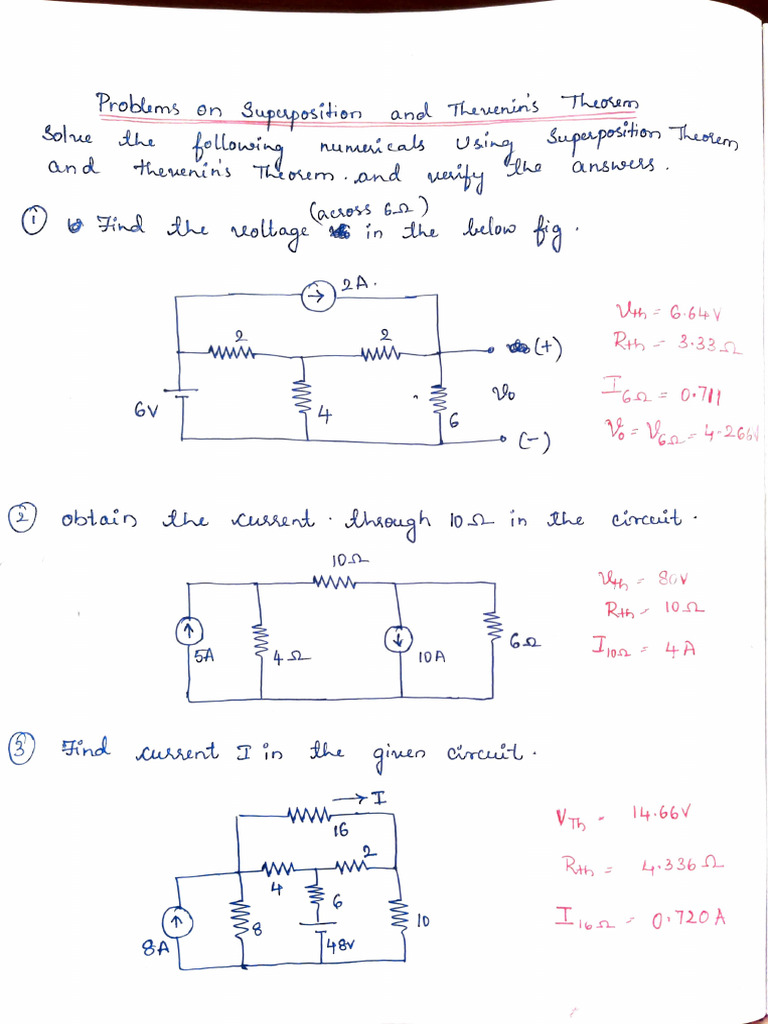 Problems on Superposition and Thevenin's Theorem
Solve the following numericals Using Superposition Theorem
and thevenin's Theorem. and verify the answers.
① Find the voltage (across 6Ω) in the below fig.
2A.
2
2
(+)
6V
4
6
V₀
(-)
Vth = 6.64V
Rth = 3.33Ω
I6Ω = 0.711
V₀ = V6Ω = 4.266V
② obtain the current through 10Ω in the circuit.
10Ω
5A
4Ω
10A
6Ω
Vth = 80V
Rth = 10Ω
I10Ω = 4A
③ Find current I in the given circuit.
→ I
16
4
2
8A
8
6
48V
10
VTh = 14.66V
Rth = 4.336Ω
I16Ω = 0.720A